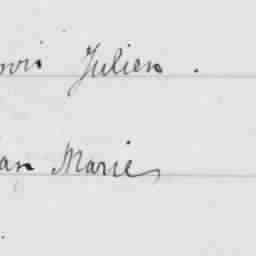 ovis Julien.
an Marie,